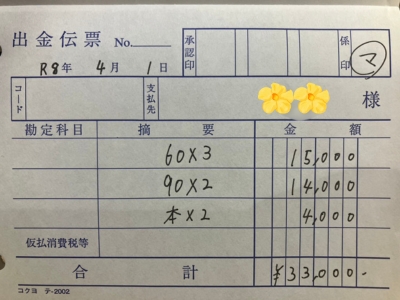 出金伝票 No.
承認印 係印 マ
R8年 4月 1日
コード 支払先 様
勘定科目 摘要 金額
60×3 15,000
90×2 14,000
本×2 4,000
仮払消費税等
合計 ¥33,000-
コクヨ テ-2002